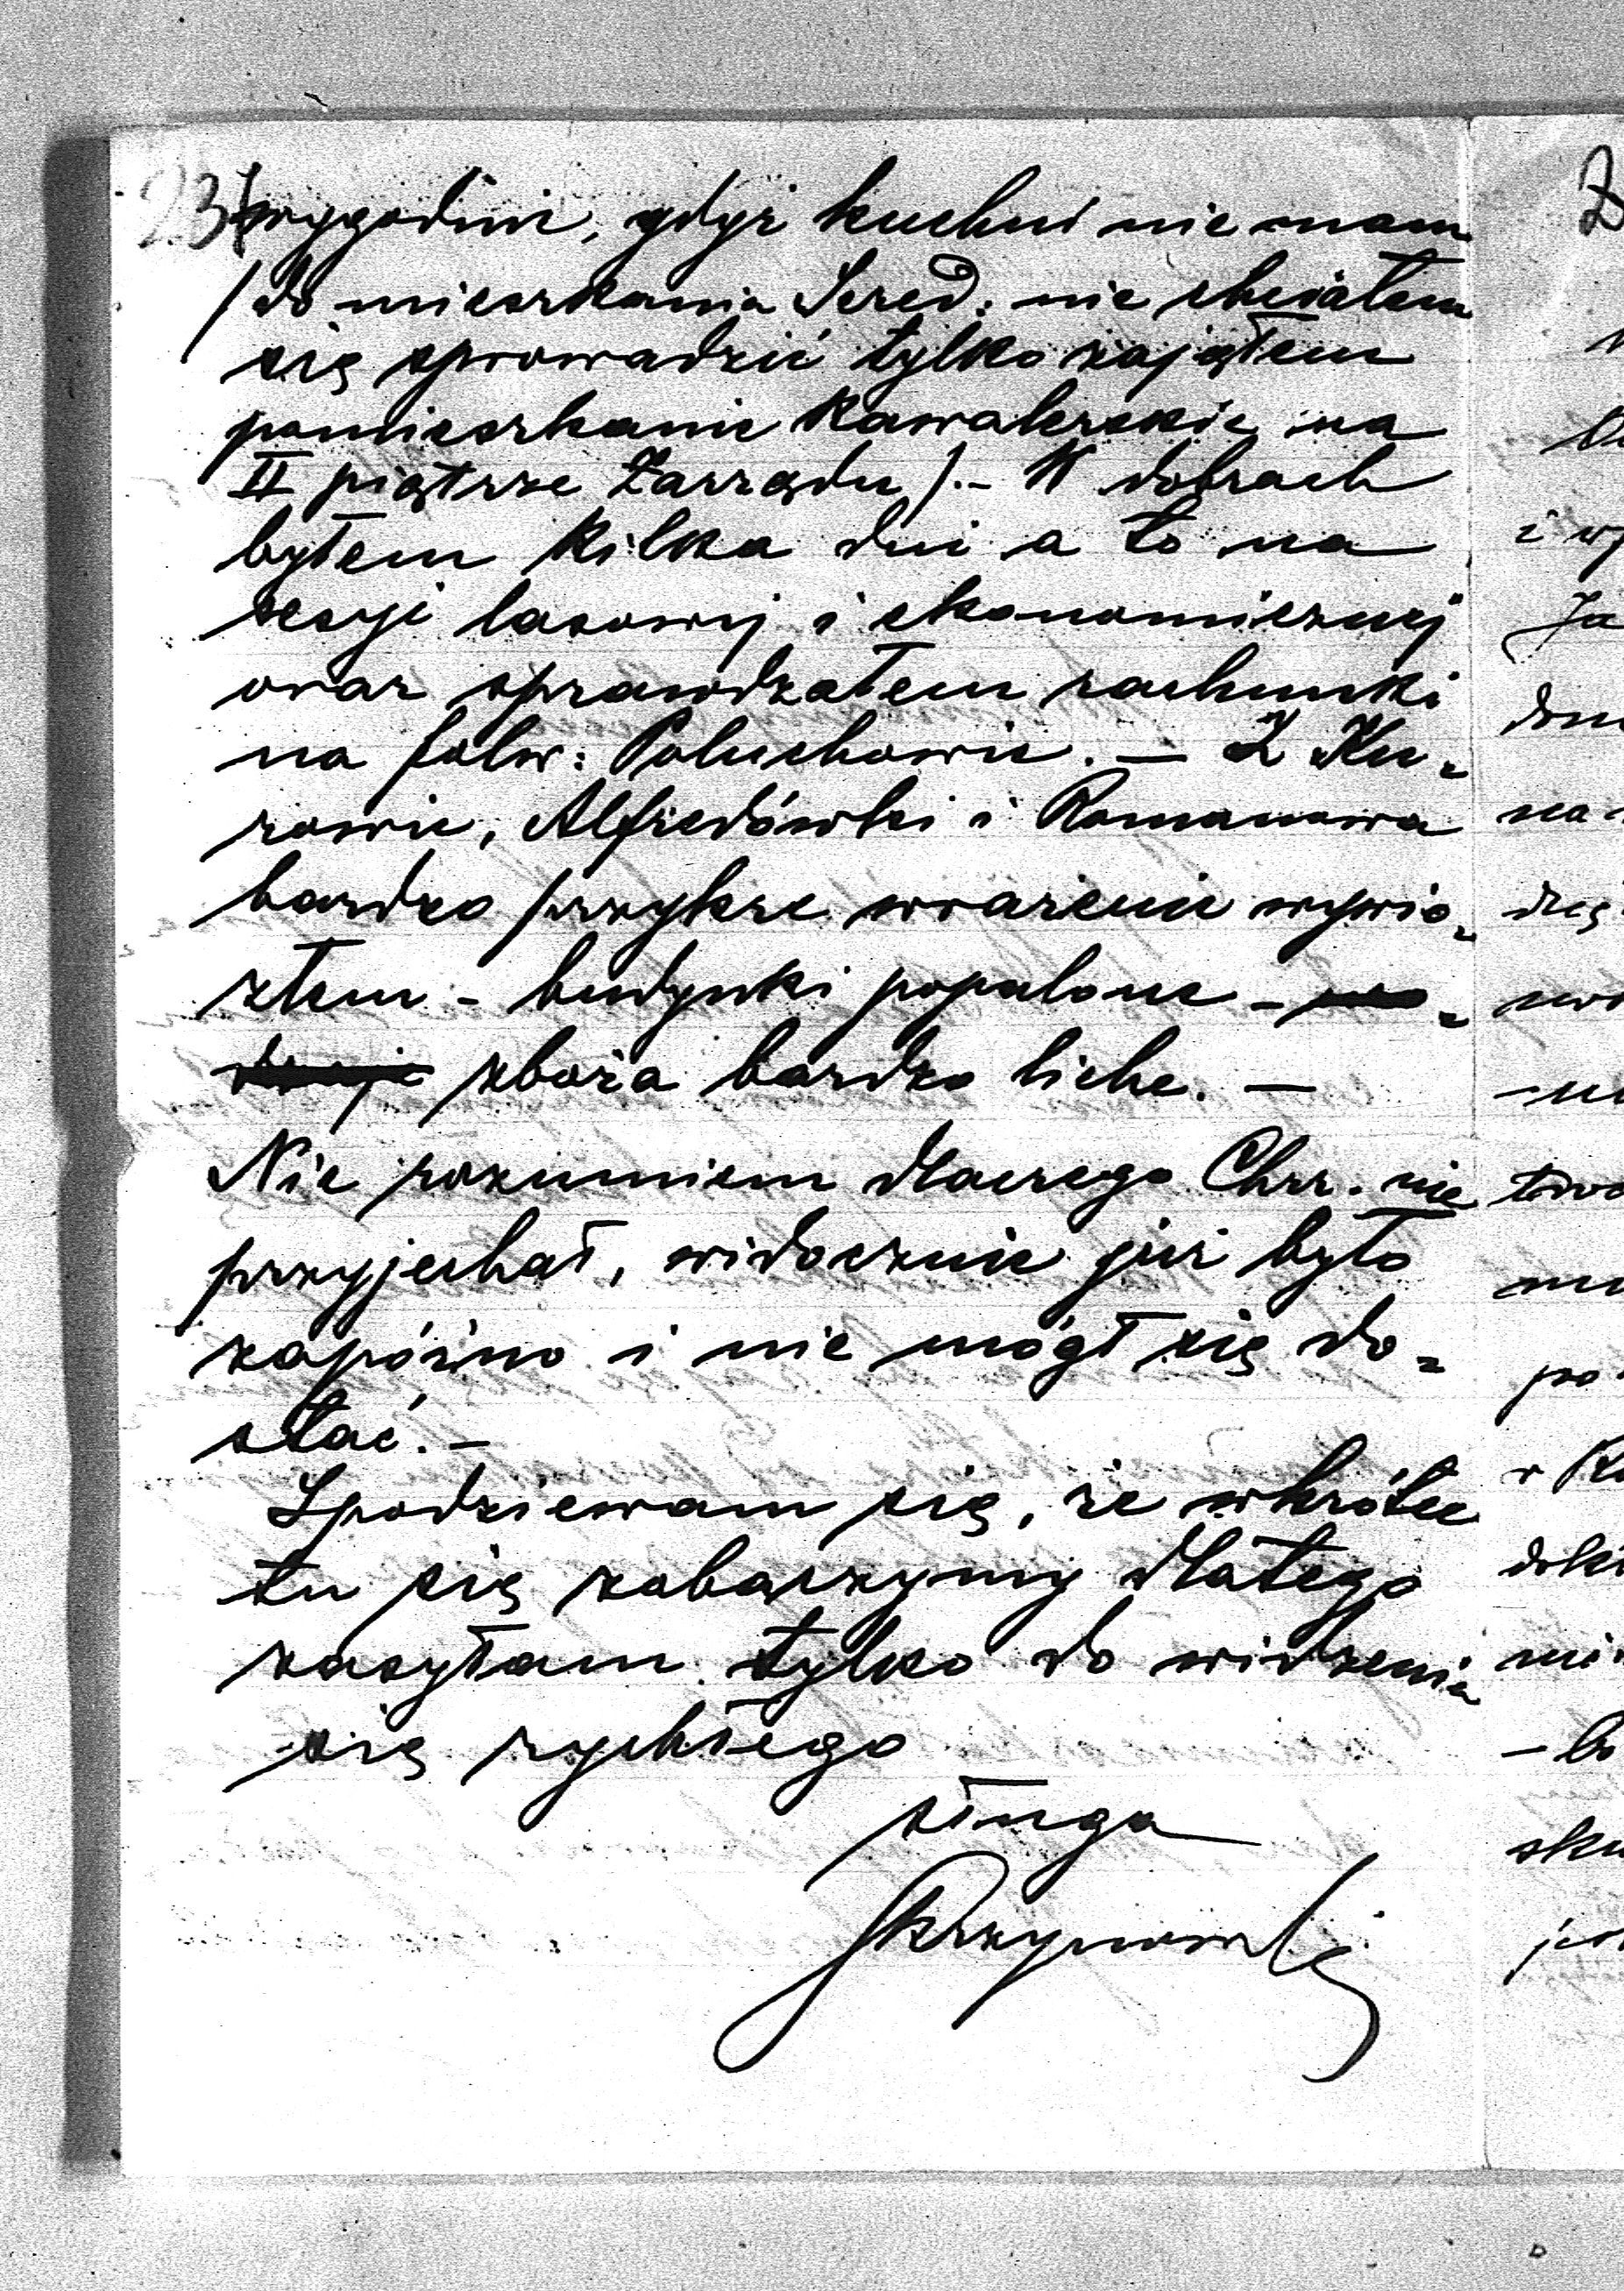 231
wygodnie, gdyż kuchni nie mam
/do mieszkania Szred: nie chciałem
się sprowadzić tylko zająłem
pomieszkanie kawalerskie na
II piątrze Zarządu/.- W dobrach
byłem kilka dni a to na
sesyi lasowej i ekonomicznej
oraz sprawdzałem rachunki
na folw: Poluchowie. — Z Ku=
rowic, Alfredówki i Romanowa
bardzo przykre wrażenie wywio=
złem - budynki popalone -
zboża bardzo liche. —
Nie rozumiem dlaczego Chrz. nie
przyjechał, widocznie już było
zapóźno i nie mógł się do=
stać. -
Spodziewam się, że wkrótce
tu się zobaczymy dlatego
zasyłam tylko do widzenia
się rychłego
sługa